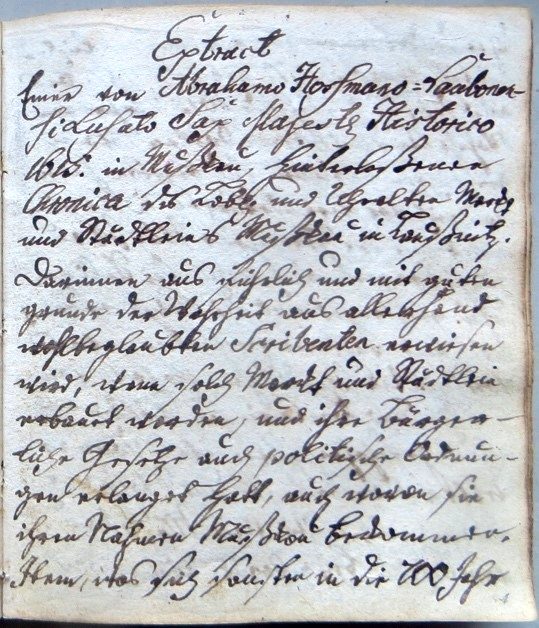 Extract
Einer von Abrahamo Hossmano = Laubanen-
si Lusato Sax Majest. Historico
16 in Mußkau, hinterlaßenen
Chronica des Löbl. und Uhralten Marckt
und Städtleins Mußkau in Laußnitz.
Darinnen aus führlich und mit guten
grunde der Wahrheit aus allerhand
wohlbeglaubten Scribenten erwiesen
wird, wenn solch Marckt und Städtlein
erbauet worden, und ihre Bürger-
liche Gesetze auch politische Ordnun-
gen erlanget hatt, auch wovon sie
ihren Nahmen Mußkau bekommen.
Item, was sich sonsten in die 700 Jahr